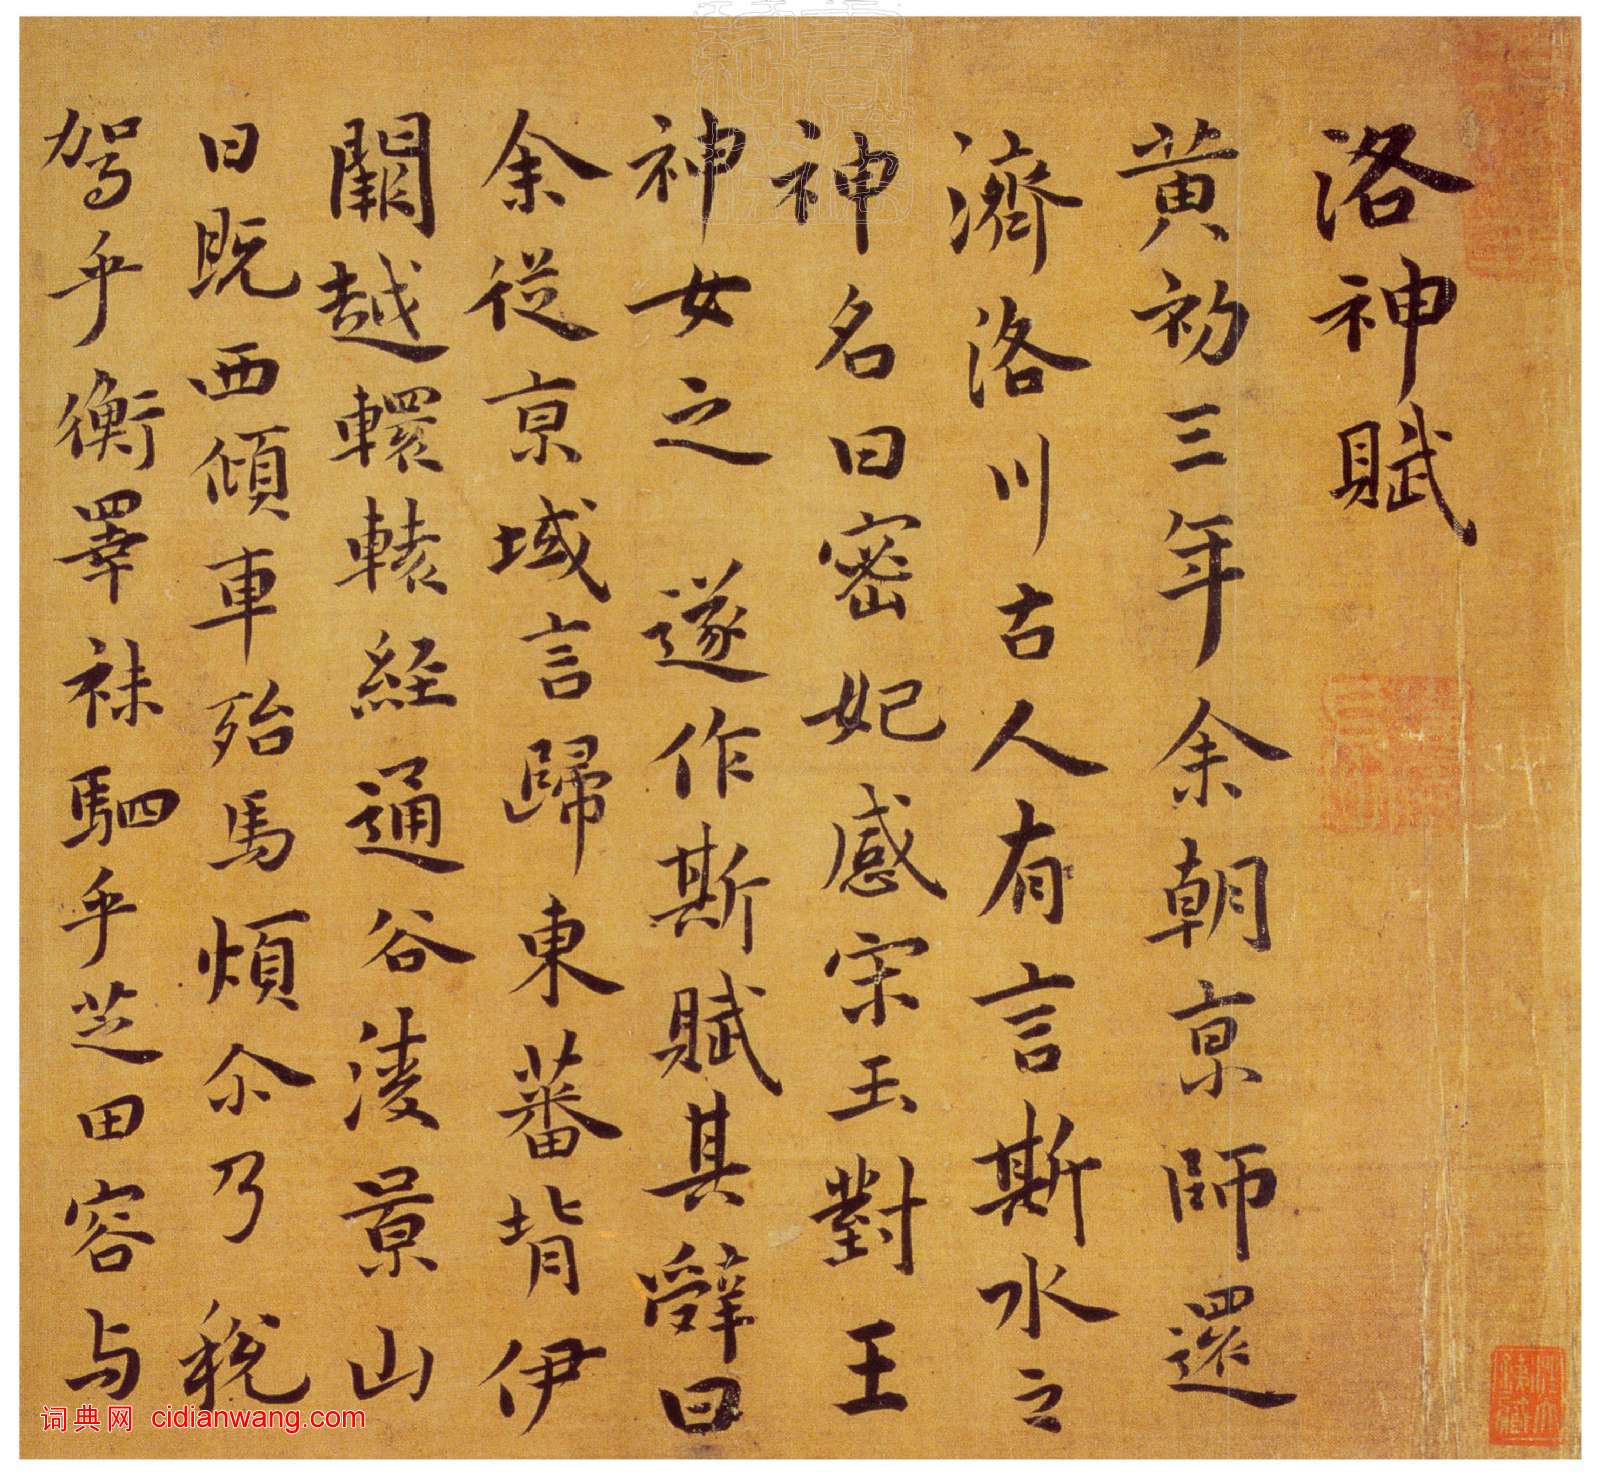 洛神賦
黄初三年余朝京師還
濟洛川古人有言斯水之
神名曰密妃感宋玉對王
神女之 遂作斯賦其辭曰
余從京域言歸東蕃背伊
闕越轘轅経通谷淩景山
日既西傾車殆馬煩尒乃稅
駕乎衡睪袜駟乎芝田容与
词典网 cidianwang.com